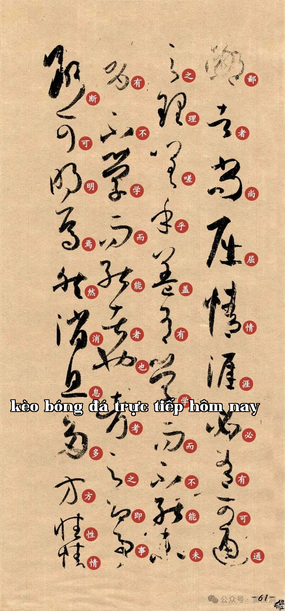 鄙者尚屈情涯必有可通
之理嗟乎盖有学而不能未
有不学而能者也考之即事
断可明焉然消息多方性情
kèo bóng đá trực tiếp hôm nay
公众号
-61-